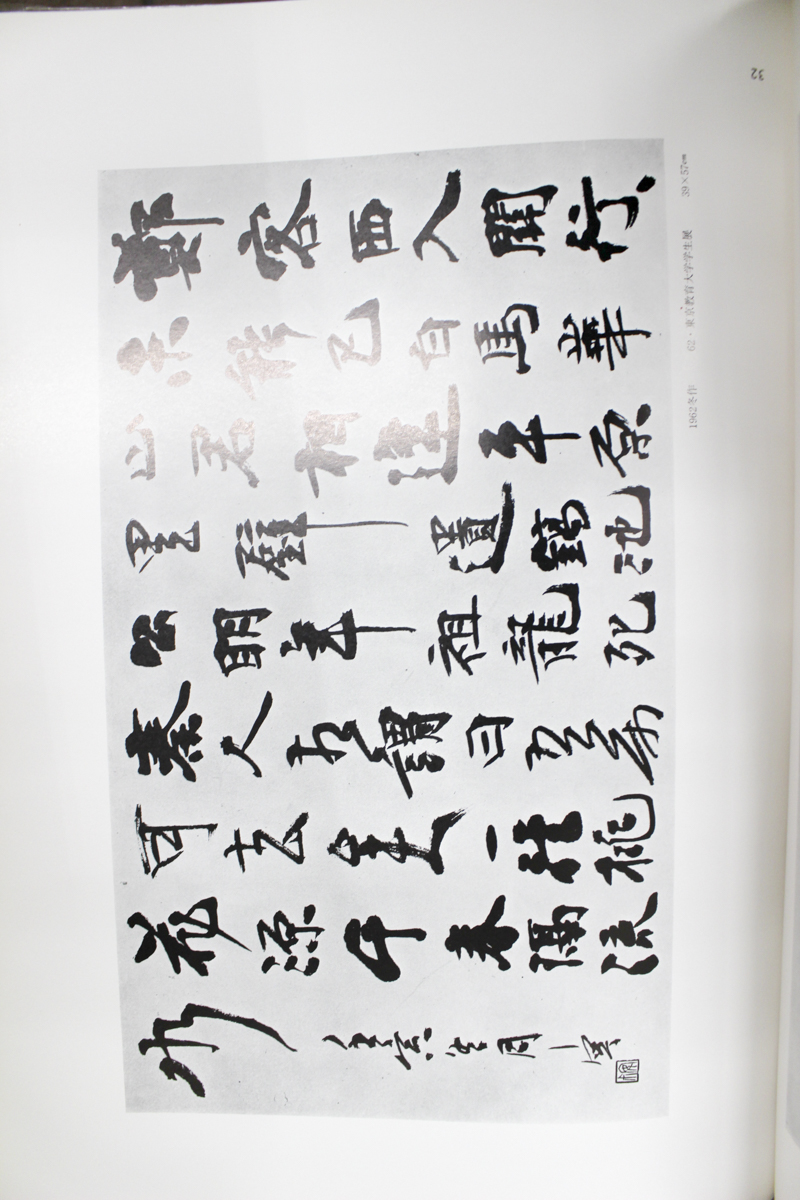 鄭客西入關行、
未能已白馬華
山君相逢平原
里璧遺鎬池
公明年祖龍死
秦人相謂曰吾属
可去矣一往桃
花源千春隔流
水 壬寅冬月
1962冬作 62・東京教育大学学生展 39×57cm
32